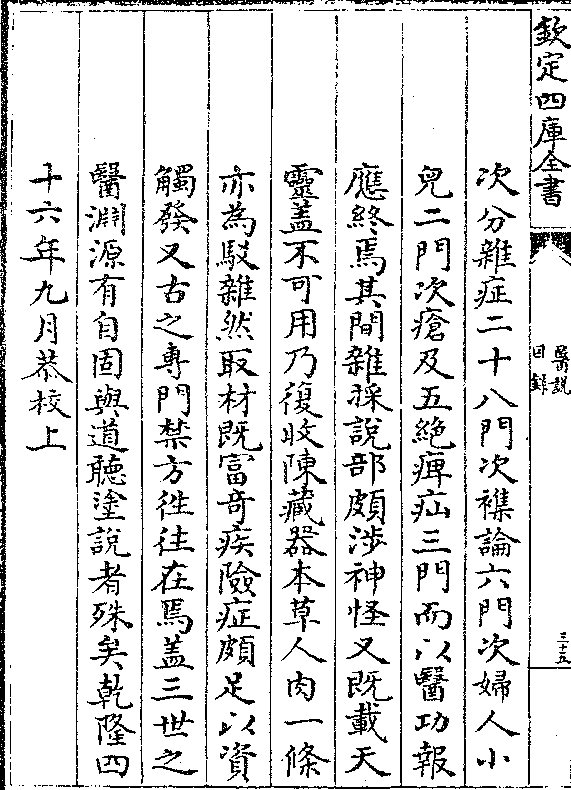 欽定四庫全書
醫說
目錄
三十五
次分雜症二十八門次襍論六門次婦人小
兒二門次瘡及五絶痺疝三門而以醫功報
應終焉其間雜採說部頗涉神怪又既載天
靈盖不可用乃復收陳藏器本草人肉一條
亦為駁雜然取材既富奇疾險症頗足以資
觸發又古之專門禁方徃徃在焉盖三世之
醫淵源有自固與道聽塗說者殊矣乾隆四
十六年九月恭校上